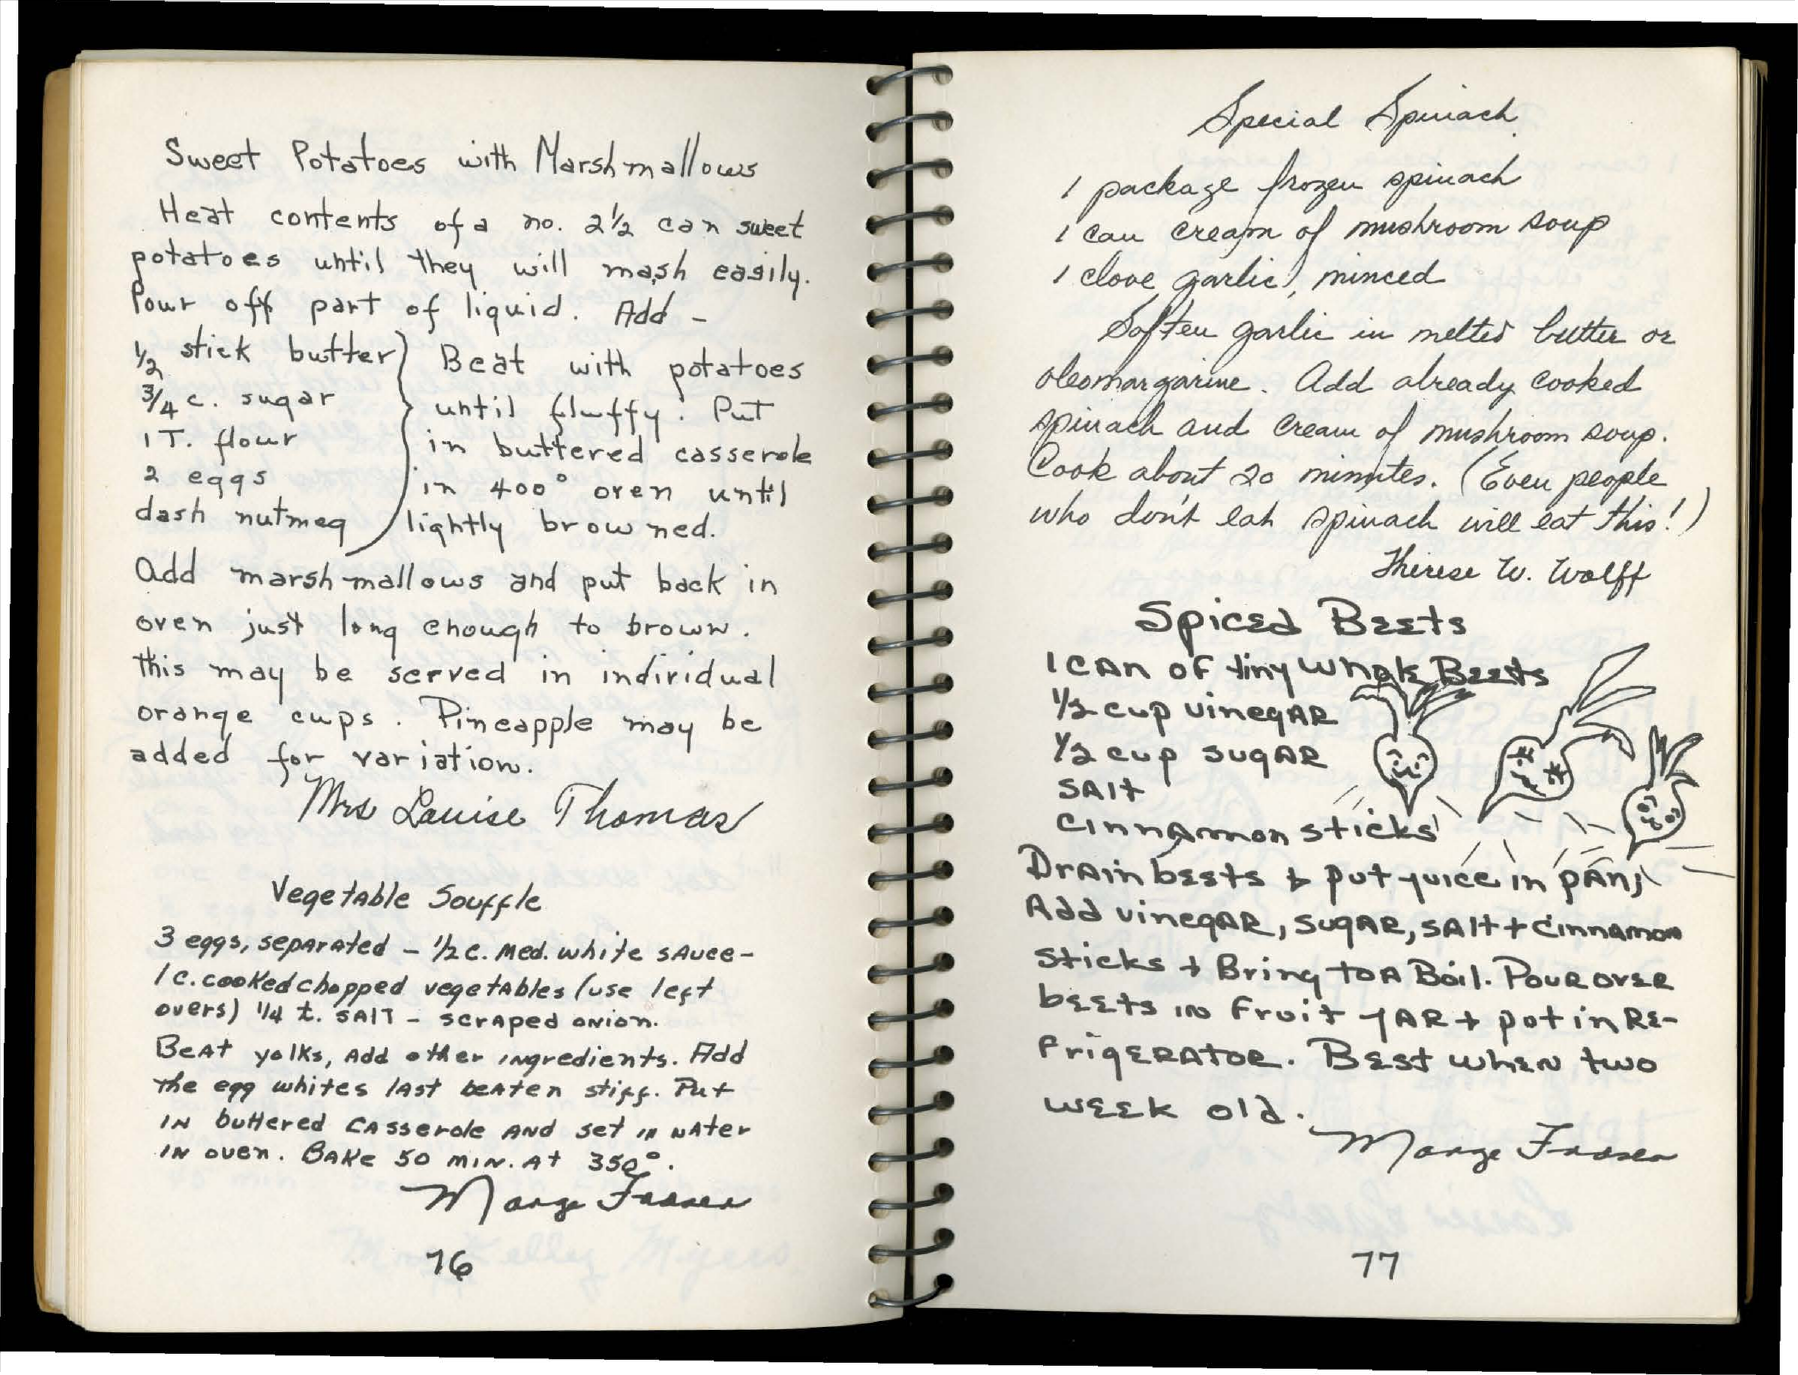 Sweet Potatoes with Marshmallows
Heat contents of a no. 2½ can sweet
potatoes until they will mash easily.
Pour off part of liquid. Add –
½ stick butter
¾ c. sugar
1 T. flour
2 eggs
dash nutmeg
Beat with potatoes
until fluffy. Put
in buttered casserole
in 400° oven until
lightly browned.
Add marshmallows and put back in
oven just long enough to brown.
this may be served in individual
orange cups. Pineapple may be
added for variation.
Mrs Louise Thomas
Vegetable Souffle
3 eggs, separated – ½ c. med. white sauce –
1 c. cooked chopped vegetables (use left
overs) ¼ t. salt – scraped onion.
Beat yolks, add other ingredients. Add
the egg whites last beaten stiff. Put
in buttered casserole and set in water
in oven. Bake 50 min. at 350°.
Marge Fraser
76
Special Spinach
1 package frozen spinach
1 can cream of mushroom soup
1 clove garlic, minced
Soften garlic in melted butter or
oleomargarine. Add already cooked
spinach and cream of mushroom soup.
Cook about 20 minutes. (Even people
who don't eat spinach will eat this!)
Therese W. Wolff
Spiced Beets
1 can of tiny whole Beets
½ cup vinegar
½ cup sugar
salt
cinnamon sticks
Drain beets + put juice in pan;
Add vinegar, sugar, salt + cinnamon
sticks + Bring to a Boil. Pour over
beets in fruit jar + put in Re-
frigerator. Best when two
week old.
Marge Fraser
77